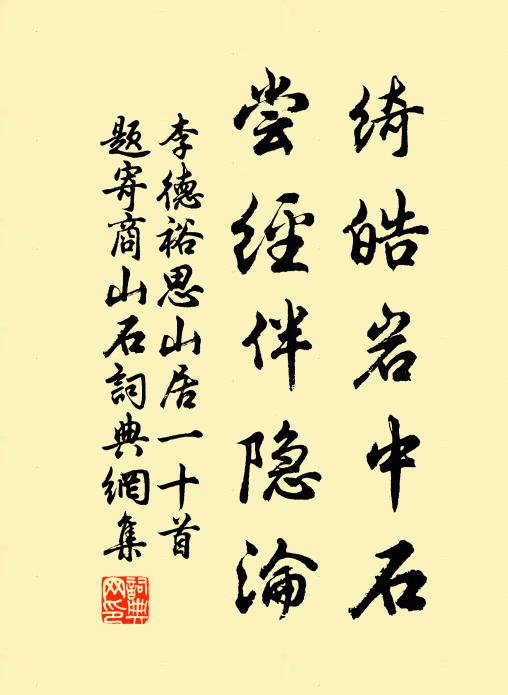 绮皓岩中石
尝經伴隐淪
李德裕思山居一十首
題寄商山石詞典網集
詞典網印